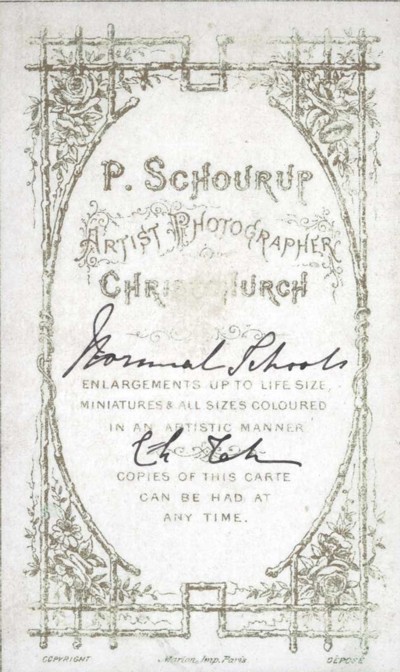 P. SCHOURUP
ARTIST PHOTOGRAPHER
CHRISTCHURCH
Normal Schools
ENLARGEMENTS UP TO LIFE SIZE,
MINIATURES & ALL SIZES COLOURED
IN AN ARTISTIC MANNER
Ch
COPIES OF THIS CARTE
CAN BE HAD AT
ANY TIME.
COPYRIGHT Marion, Imp. Paris DÉPOSÉ